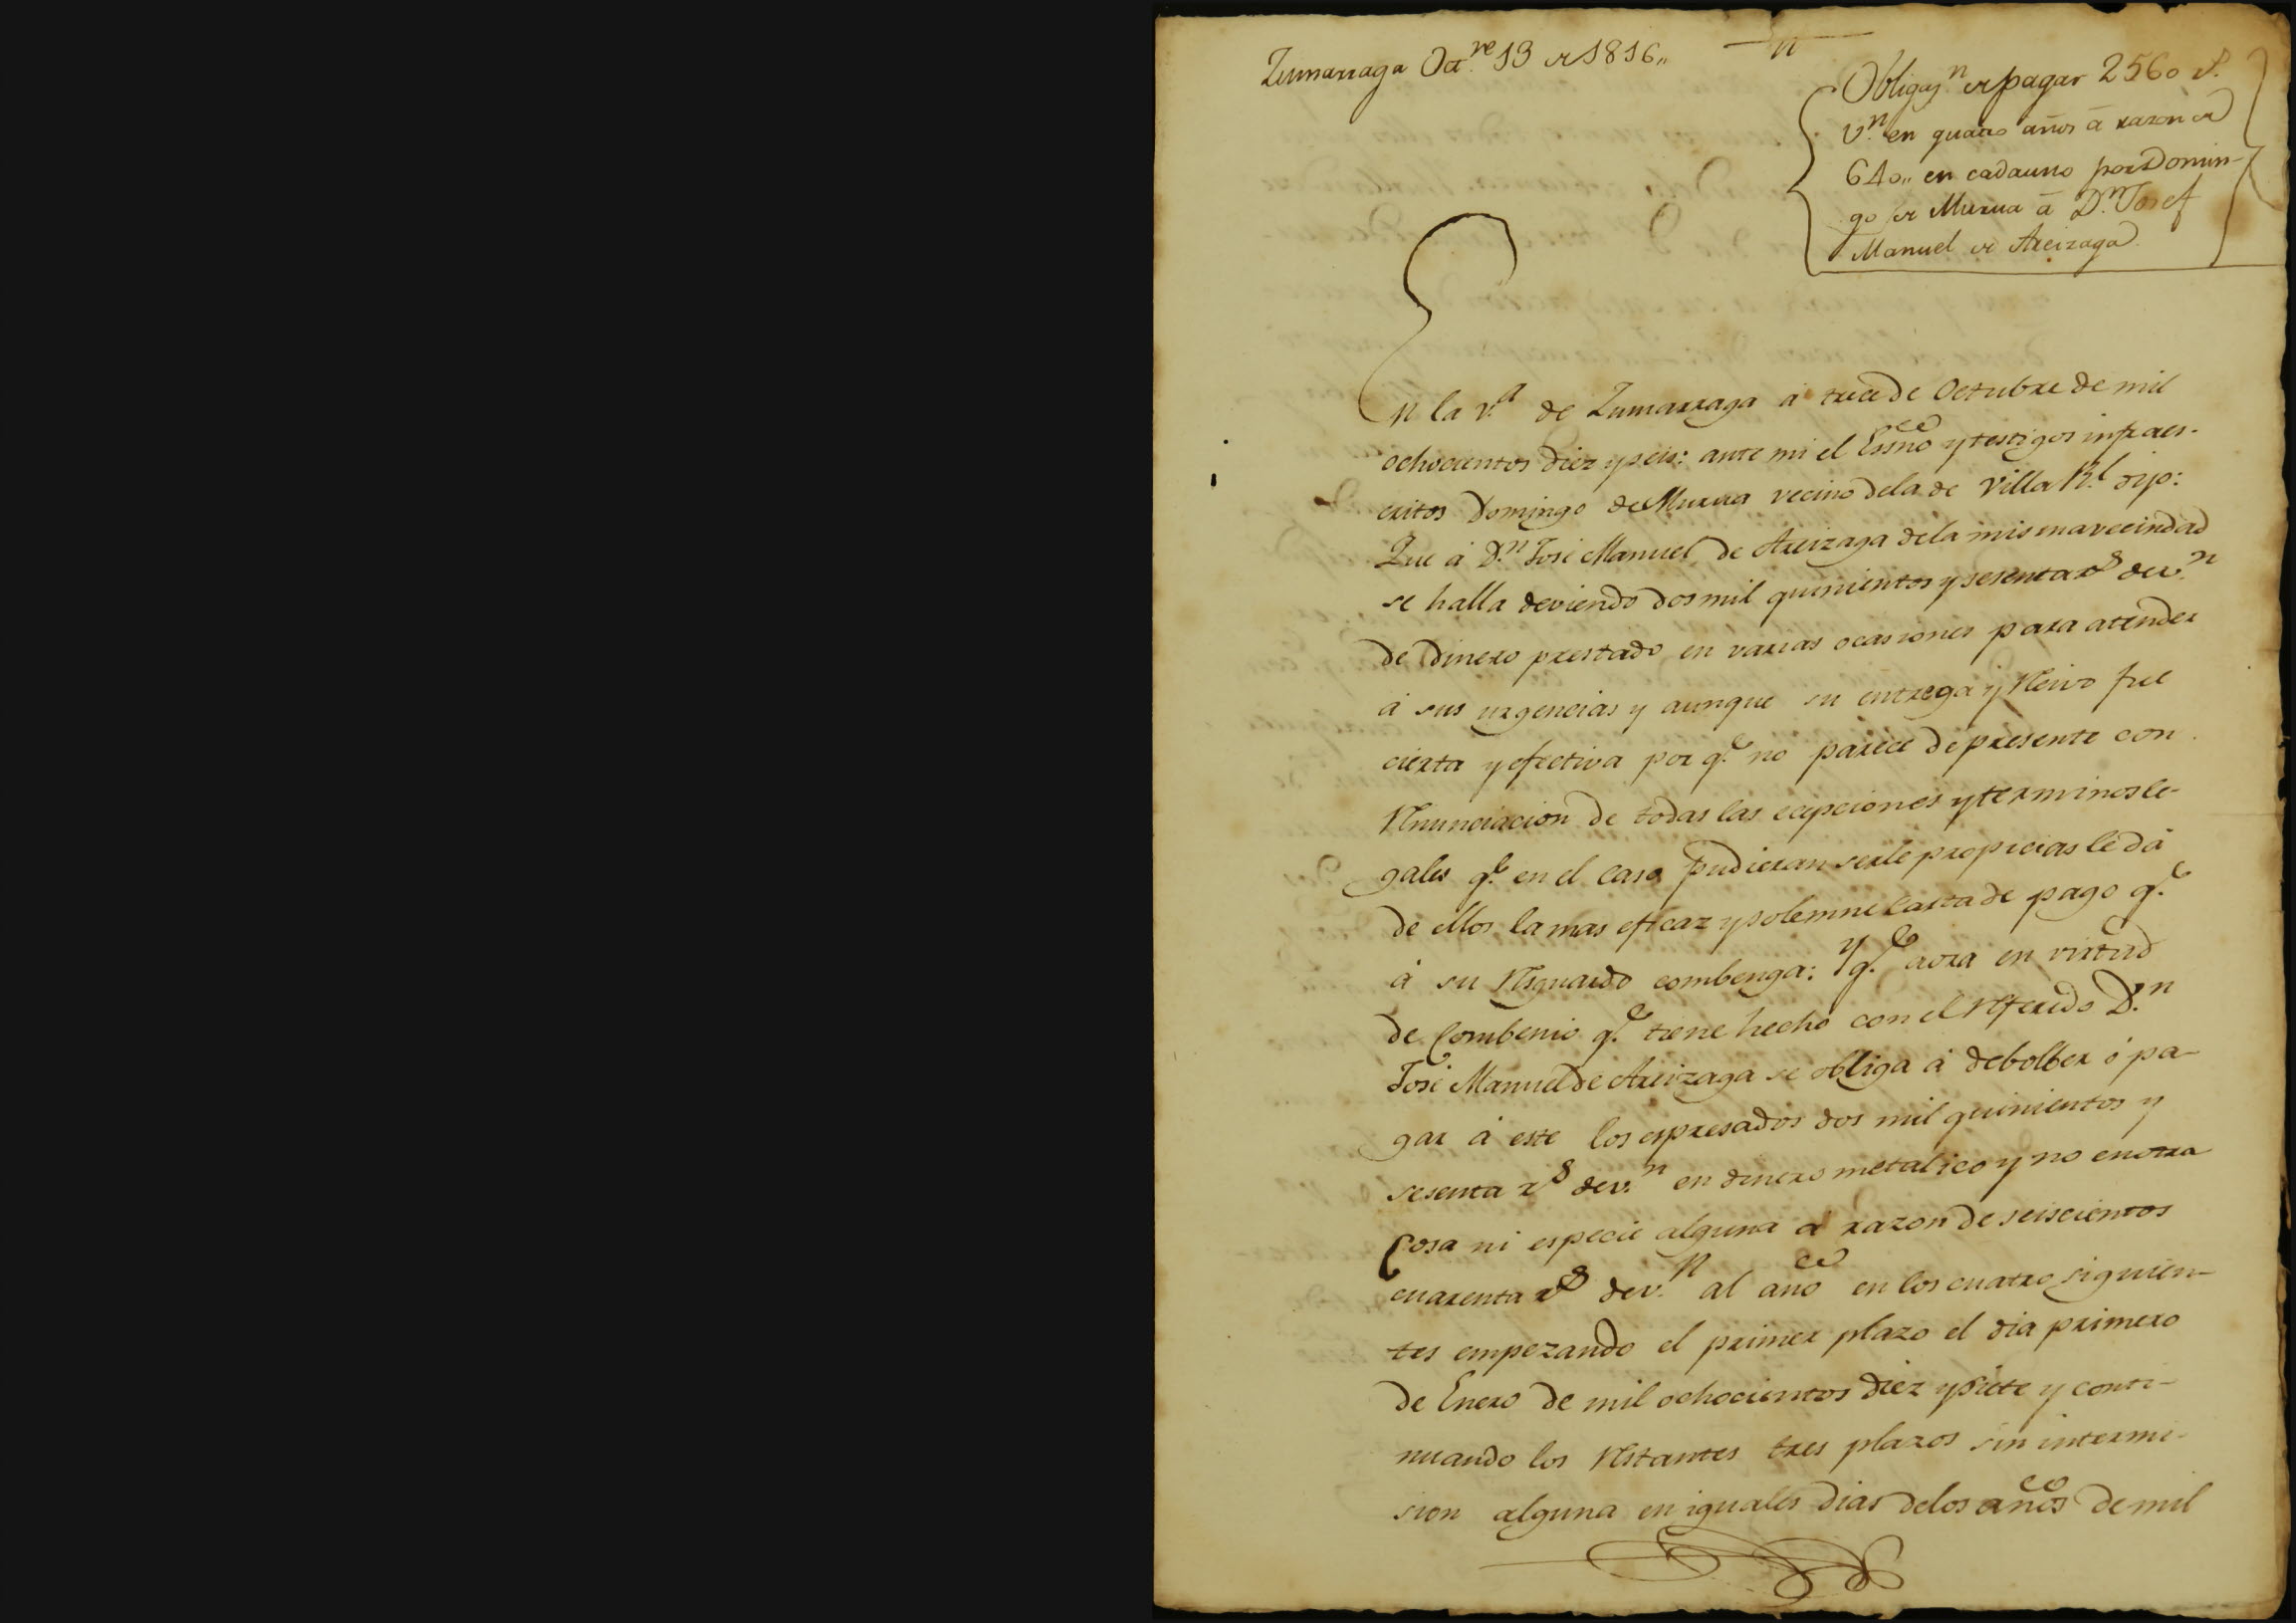 Zumarraga Oct.re 13 de 1816,,
Obligaz.n de pagar 2560 r.s
v.n en quatro años á razon de
640,, en cada uno por Domin-
go de Murua á D.n Josef
Manuel de Areizaga
En la v.a de Zumarraga á trece de Octubre de mil
ochocientos diez y seis: ante mi el Essno y testigos infraes-
critos Domingo de Murua vecino dela de Villa R.l dijo:
Que á D.n José Manuel de Areizaga dela misma vecindad
se halla deviendo dos mil quinientos y sesenta r.s de v.n
de dinero prestado en varias ocasiones para atender
á sus urgencias y aunque su entrega y recivo fue
cierta y efectiva por q.e no parece de presente con
renunciacion de todas las ecepciones y terminos le-
gales q.e en el caso pudieran serle propicias le dá
de ellos la mas eficaz y solemne carta de pago q.e
á su resguardo combenga: Y q.e aora en virtud
de Combenio q.e tiene hecho con el referido D.n
José Manuel de Areizaga se obliga á debolber ó pa-
gar á este los espresados dos mil quinientos y
sesenta r.s de v.n en dinero metalico y no en otra
Cosa ni especie alguna á razon de seiscientos
cuarenta r.s de v.n al año en los cuatro siguien-
tes empezando el primer plazo el dia primero
de Enero de mil ochocientos diez y siete y conti-
nuando los restantes tres plazos sin intermi-
sion alguna en iguales dias delos años de mil